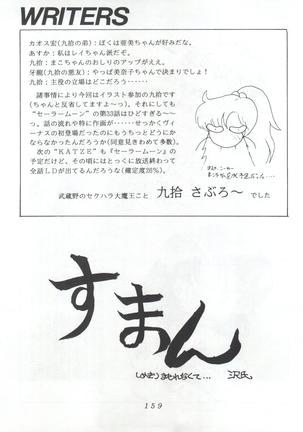 WRITERS
カオス宏(九拾の弟):ぼくは亜美ちゃんが好みだな。
あすか:私はレイちゃん派だぞ。
九拾:まこちゃんのおしりのアップがええ。
牙龍(九拾の悪友):やっぱ美奈子ちゃんで決まりでしょ!
九拾:主役の立場はどこだろう……
諸事情により今回はイラスト参加の九拾です
(ちゃんと反省してますよ~っ)。それにしても
“セーラームーン”の第33話はひどすぎる~
っ。話の流れや特に作画が……せっかくヴィ
ーナスの初登場だったのにもうちっとどうにか
ならなかったんだろうか(同意見きわめて多数)。
次の“KATZE”も『セーラームーン』の
予定だけど、その頃にはとっくに放送終わって
全話LDが出てるんだろうな(確定度26%)。
武蔵野のセクハラ大魔王こと 九拾 さぶろ~ でした
すまん
しめきり まもれなくて...
沢氏
159